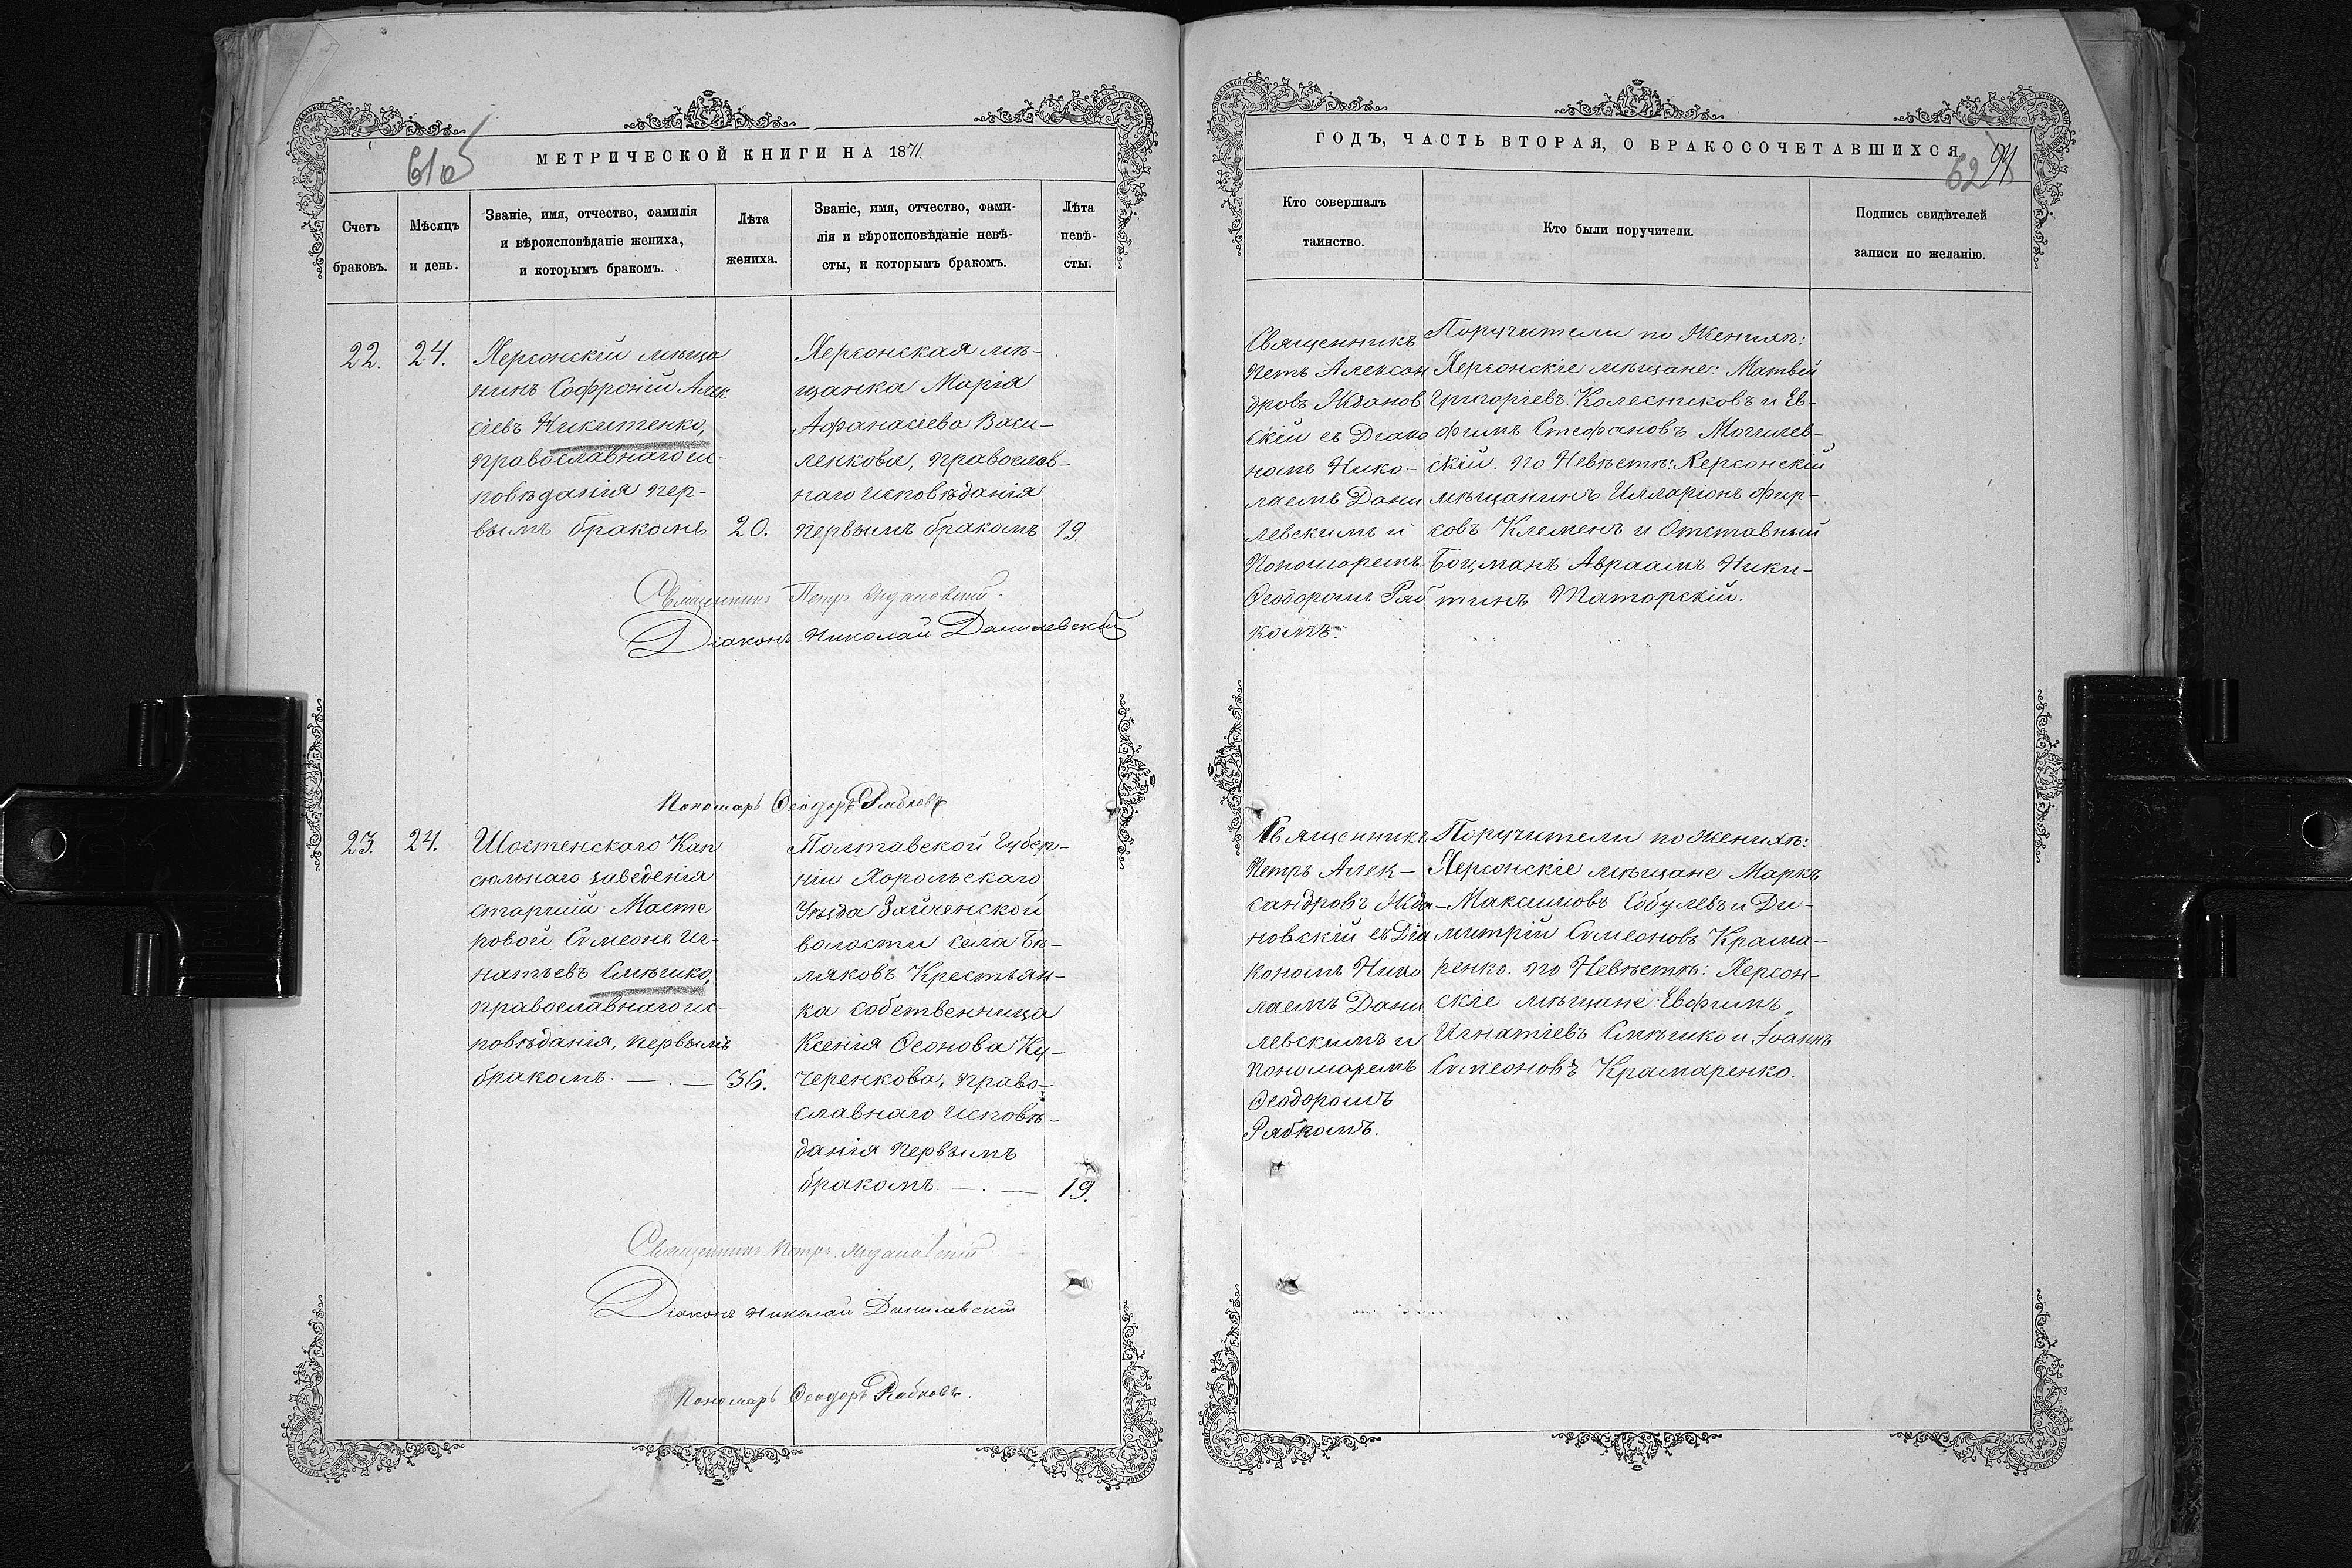 61об
МЕТРИЧЕСКОЙ КНИГИ НА 1871.
Счетъ
браковъ.
Мѣсяцъ
и день.
Званіе, имя, отчество, фамилія
и вѣроисповѣданіе жениха,
и которымъ бракомъ.
Лѣта
жениха.
Званіе, имя, отчество, фами-
лія и вѣроисповѣданіе невѣ-
сты, и которымъ бракомъ.
Лѣта
невѣ-
сты.
22.
24.
Херсонскій мѣща
нинъ Софроній Алек
сіевъ Никитенко,
православнаго ис-
повѣданія пер-
вымъ бракомъ
20.
Херсонская мѣ-
щанка Марія
Афанасіева Васи-
ленкова, православ-
наго исповѣданія
первымъ бракомъ
19.
Священникъ Петръ Ждановскій.
Діаконъ Николай Данилевскій
Пономарь Ѳеодоръ Рябковъ
23.
24.
Шостенскаго Кап
сюльнаго заведенія
старшій Масте
ровой Симеонъ Иг-
натьевъ Смѣшко,
православнаго ис-
повѣданія, первымъ
бракомъ. — . —
36.
Полтавской Губер-
ніи Хорольскаго
Уѣзда Зайченской
волости села Бѣ-
ляковъ Крестьян-
ка собственница
Ксенія Ѳеонова Ку-
черенкова, право-
славнаго исповѣ-
данія первымъ
бракомъ. — . —
19.
Священникъ Петръ Ждановскій.
Діаконъ Николай Данилевскій
Пономарь Ѳеодоръ Рябковъ.
ГОДЪ, ЧАСТЬ ВТОРАЯ, О БРАКОСОЧЕТАВШИХСЯ
62
Кто совершалъ
таинство.
Кто были поручители.
Подпись свидѣтелей
записи по желанію.
Священникъ
Петъ Алексан
дровъ Жданов
скій съ Діако
номъ Нико-
лаемъ Дани
левскимъ и
Пономаремъ
Ѳеодоромъ Ряб
комъ.
Поручители по Женихѣ:
Херсонскіе мѣщане: Матвѣй
Григоріевъ Колесниковъ и Ев-
фимъ Стефановъ Могилев-
скій. по Невѣстѣ: Херсонскій
мѣщанинъ Илларіонъ Фир-
совъ Клеменъ и Отставный
Боцманъ Авраамъ Ники-
тинъ Таторскій.
Священникъ
Петръ Алек-
сандровъ Жда-
новскій съ Діа
кономъ Нико
лаемъ Дани
левскимъ и
пономаремъ
Ѳеодоромъ
Рябкомъ.
Поручители по женихѣ:
Херсонскіе мѣщане Маркъ
Максимовъ Собулевъ и Ди-
митрій Симеоновъ Крама-
ренко. по Невѣстѣ: Херсон-
скіе мѣщане: Евфимъ
Игнатіевъ Смѣшко и Іоаннъ
Симеоновъ Крамаренко.